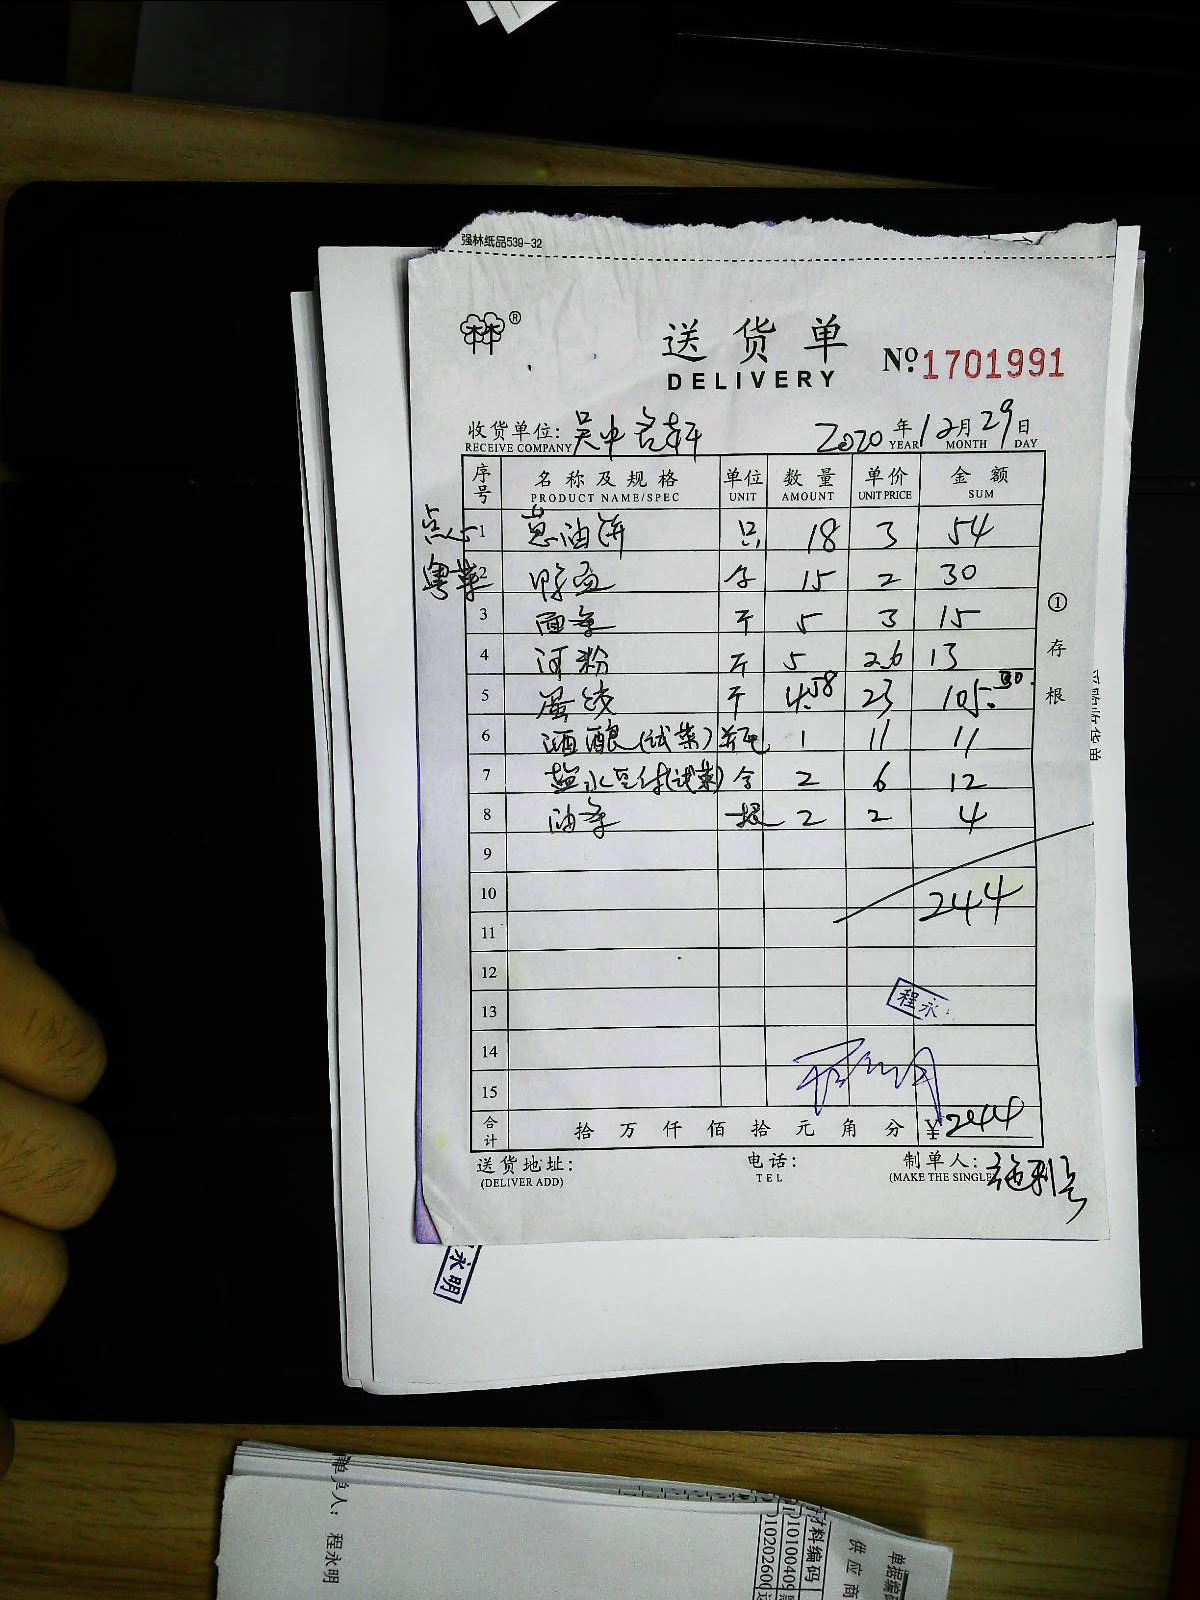 强林纸品539-32
林®
送货单
DELIVERY
Nº 1701991
收货单位: 吴中名轩 2020年12月29日
RECEIVE COMPANY YEAR MONTH DAY
序号 名称及规格 单位 数量 单价 金额
PRODUCT NAME/SPEC UNIT AMOUNT UNIT PRICE SUM
点心 1 葱油饼 只 18 3 54
粤菜 2 15 2 30
3 面条 斤 5 3 15
4 河粉 斤 5 2.6 13
5 蛋饺 斤 4.58 23 105.30
6 酒酿(试菜) 1 11 11
7 盐水豆付(试菜) 2 6 12
8 油条 根 2 2 4
9
10 244
11
12
13 程永
14
15
合计 拾万仟佰拾元角分 ¥244
送货地址: 电话: 制单人:
(DELIVER ADD) TEL (MAKE THE SINGLE
①存根
永明
单人: 程永明
材料编码
供应商
单据编